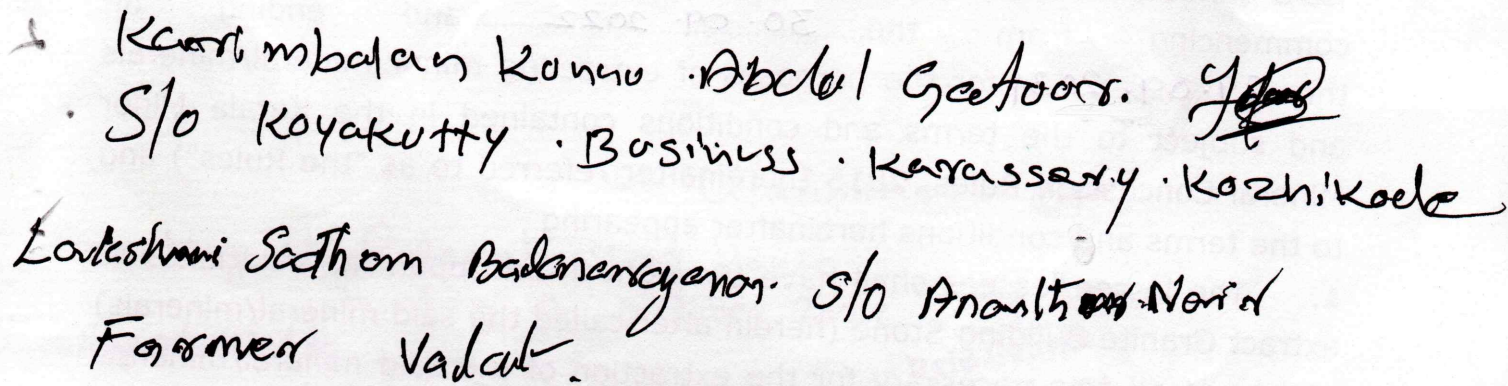 Karrimbalan Konnu .Abdul Gafoor.
S/o Koyakutty . Business . Karassery . Kozhikode
Lakshmi Sadhom Badanarayanan. S/o Ananthan Nair
Farmer Vadcut.